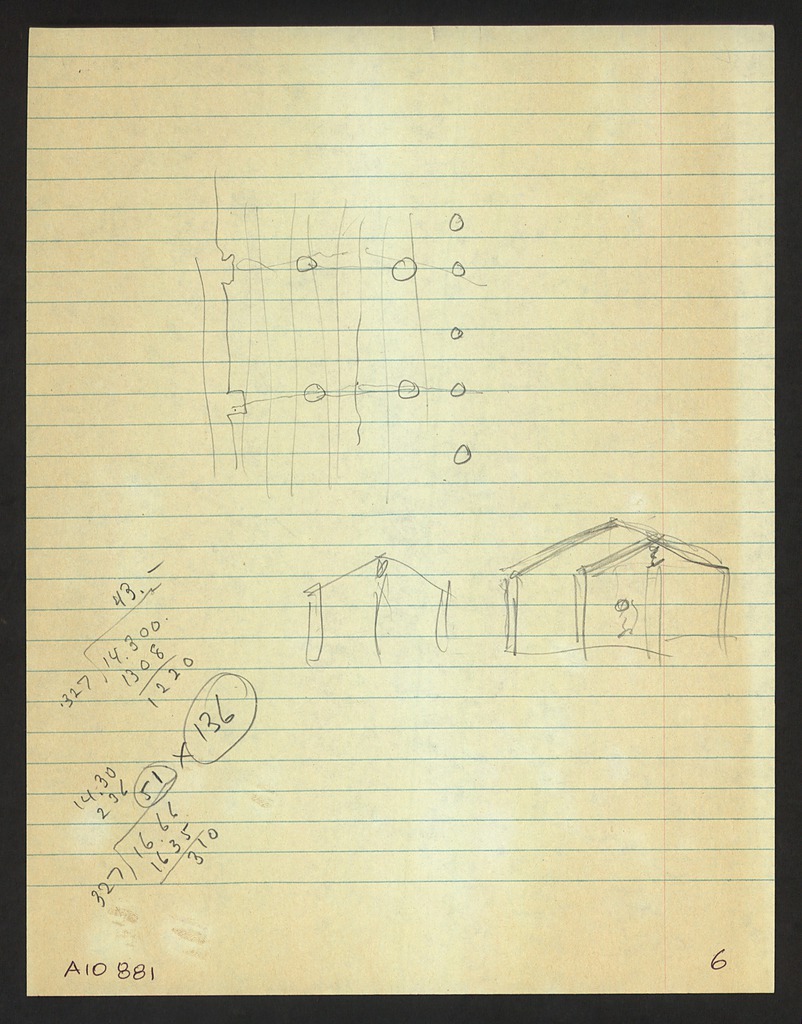 43.-
.327 14.300.
1308
1220
136
x
14.30
2 36
51
327 16.66
16.35
310
A10 881
6